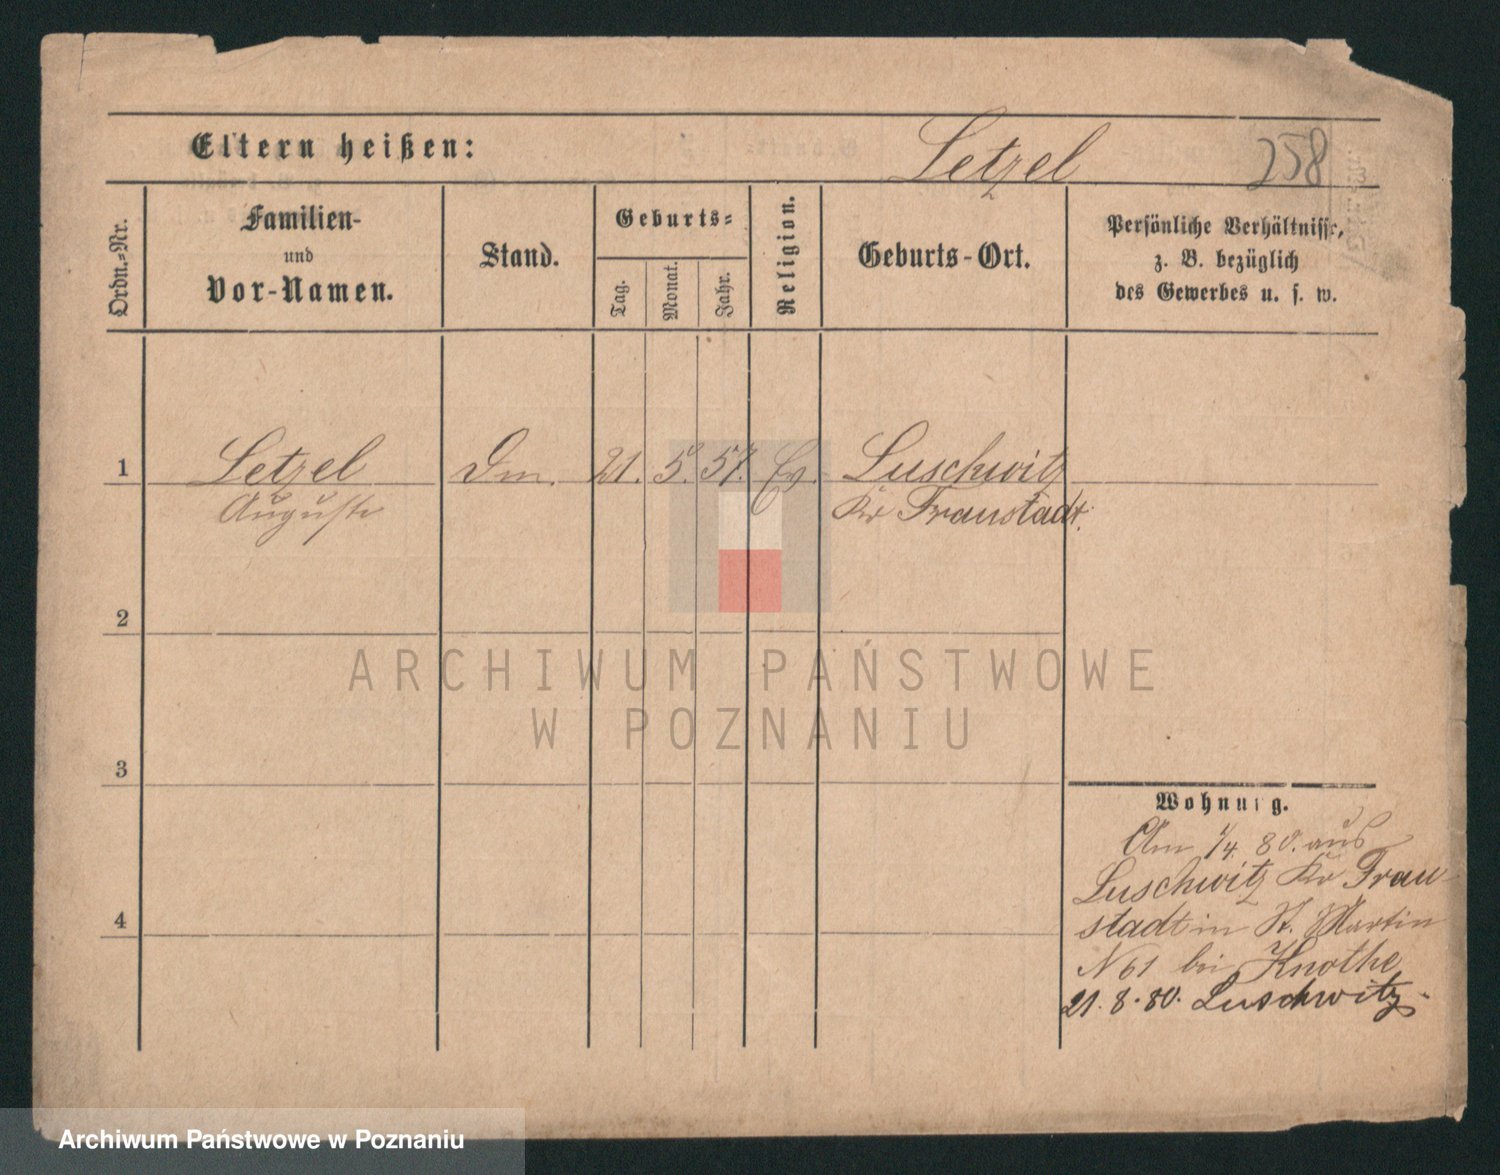 Eltern heißen:
Letzel
258
Ordn.-Nr.
Familien-
und
Vor-Namen.
Stand.
Geburts-
Tag.
Monat.
Jahr.
Religion.
Geburts-Ort.
Persönliche Verhältnisse,
z. B. bezüglich
des Gewerbes u. s. w.
1 Letzel Dm. 21. 5. 57. Ev. Luschwitz
Auguste Kr Fraustadt.
2
ARCHIWUM PAŃSTWOWE
W POZNANIU
3
Wohnung.
Am 1/4 80. aus
Luschwitz Kr Frau-
stadt in St. Martin
N 61 bei Knothe
21. 8. 80. Luschwitz.
4
Archiwum Państwowe w Poznaniu